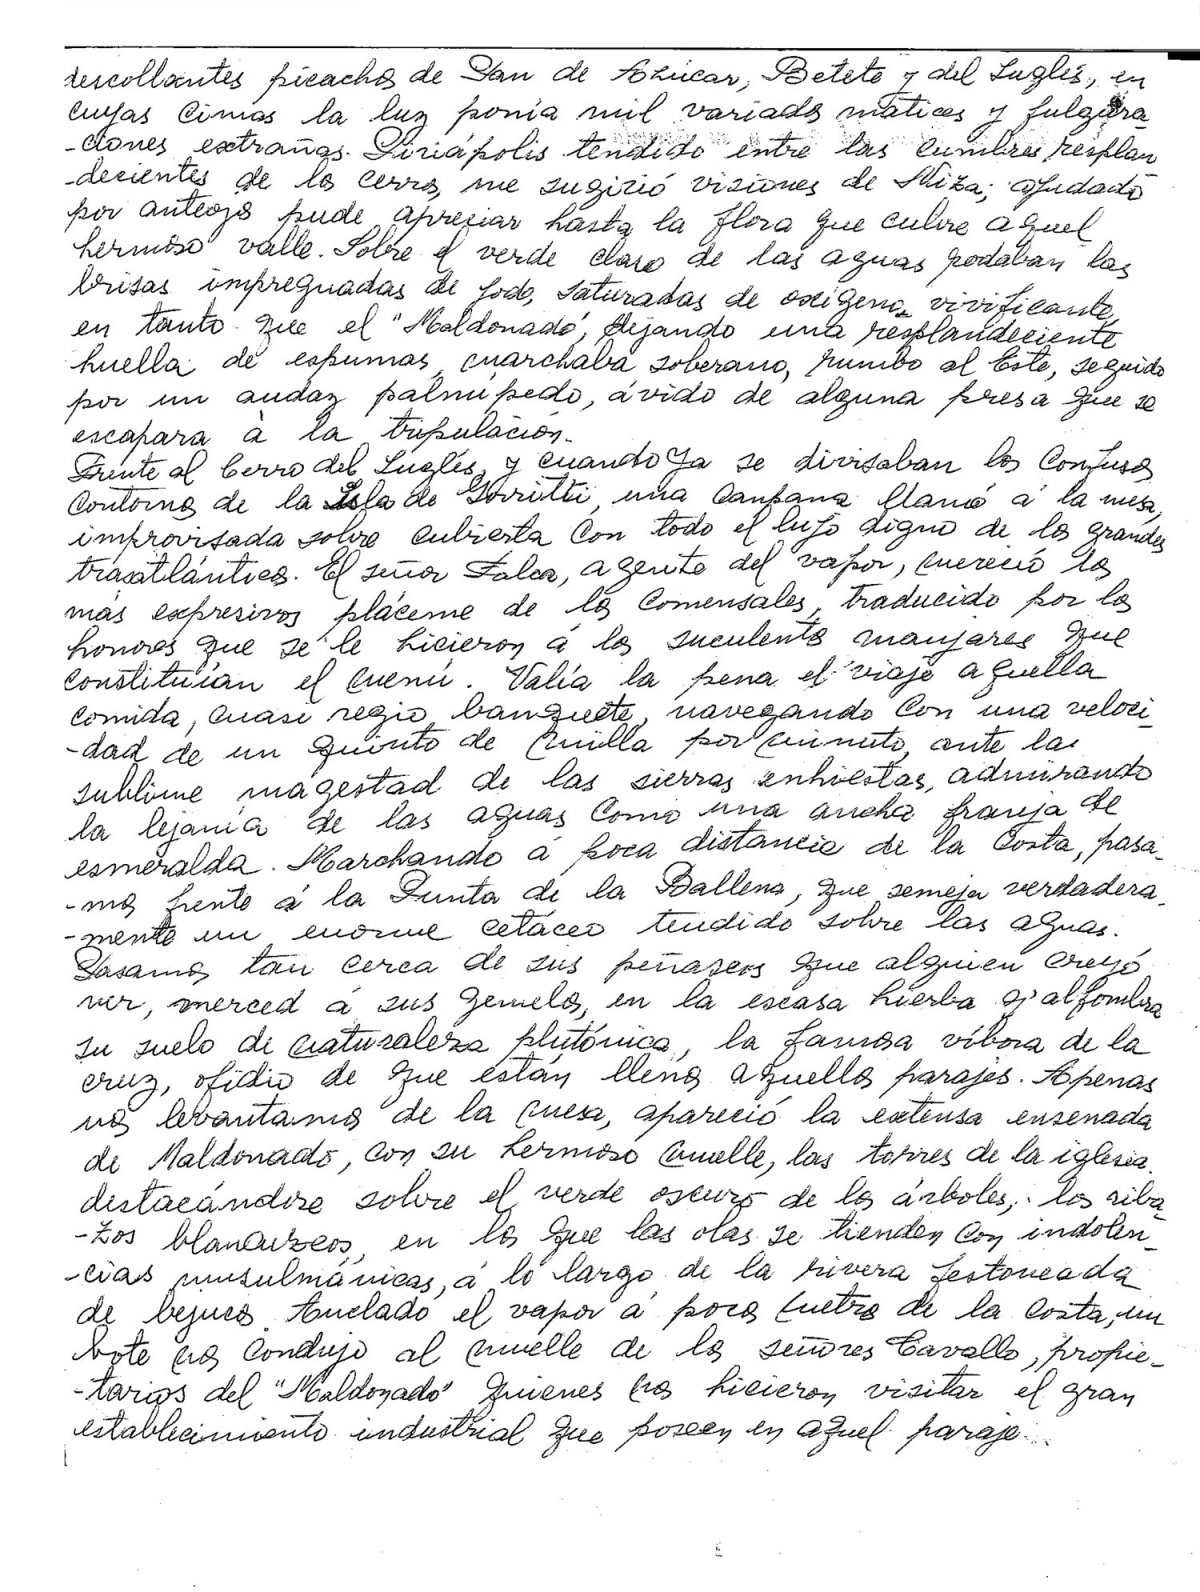 descollantes picachos de Pan de Azúcar, Betete y del Inglés, en
cuyas cimas la luz ponía mil variados matices y fulgura
-ciones extrañas. Piriápolis tendido entre las cumbres resplan
-decientes de los cerros, me sugirió visiones de Niza; ayudado
por anteojos pude apreciar hasta la flora que cubre aquel
hermoso valle. Sobre el verde claro de las aguas rodaban las
brisas impregnadas de yodo, saturadas de oxígeno vivificante,
en tanto que el "Maldonado", dejando una resplandeciente
huella de espumas, marchaba soberano, rumbo al Este, seguido
por un audaz palmípedo, ávido de alguna presa que se
escapara à la tripulación.
Frente al Cerro del Inglés, y cuando ya se divisaban los confusos
contornos de la Isla de Gorritti, una campana llamó á la mesa,
improvisada sobre cubierta con todo el lujo digno de los grandes
trasatlánticos. El señor Falca, agente del vapor, mereció los
más expresivos pláceme de los comensales, traducido por los
honores que se le hicieron á los suculentos manjares que
constituían el menú. Valía la pena el viaje aquella
comida, cuasi regio banquete, navegando con una veloci
-dad de un quinto de milla por minuto, ante la
sublime magestad de las sierras enhiestas, admirando
la lejanía de las aguas como una ancha franja de
esmeralda. Marchando á poca distancia de la Costa, pasa-
-mos frente á la Punta de la Ballena, que semeja verdadera-
-mente un enorme cetáceo tendido sobre las aguas.
Pasamos tan cerca de sus peñascos que alguien creyó
ver, merced á sus gemelos, en la escasa hierba q' alfombra
su suelo de naturaleza plutónica, la famosa víbora de la
cruz, ofidio de que están llenos aquellos parajes. Apenas
nos levantamos de la mesa, apareció la extensa ensenada
de Maldonado, con su hermoso muelle, las torres de la iglesia
destacándose sobre el verde oscuro de los árboles, los riba-
-zos blancuzcos, en los que las olas se tienden con indolen-
-cias musulmánicas, á lo largo de la rivera festoneada
de bejucos. Anclado el vapor á pocos metros de la costa, un
bote nos condujo al muelle de los señores Cavallo, propie-
-tarios del "Maldonado" quienes nos hicieron visitar el gran
establecimiento industrial que poseen en aquel paraje...